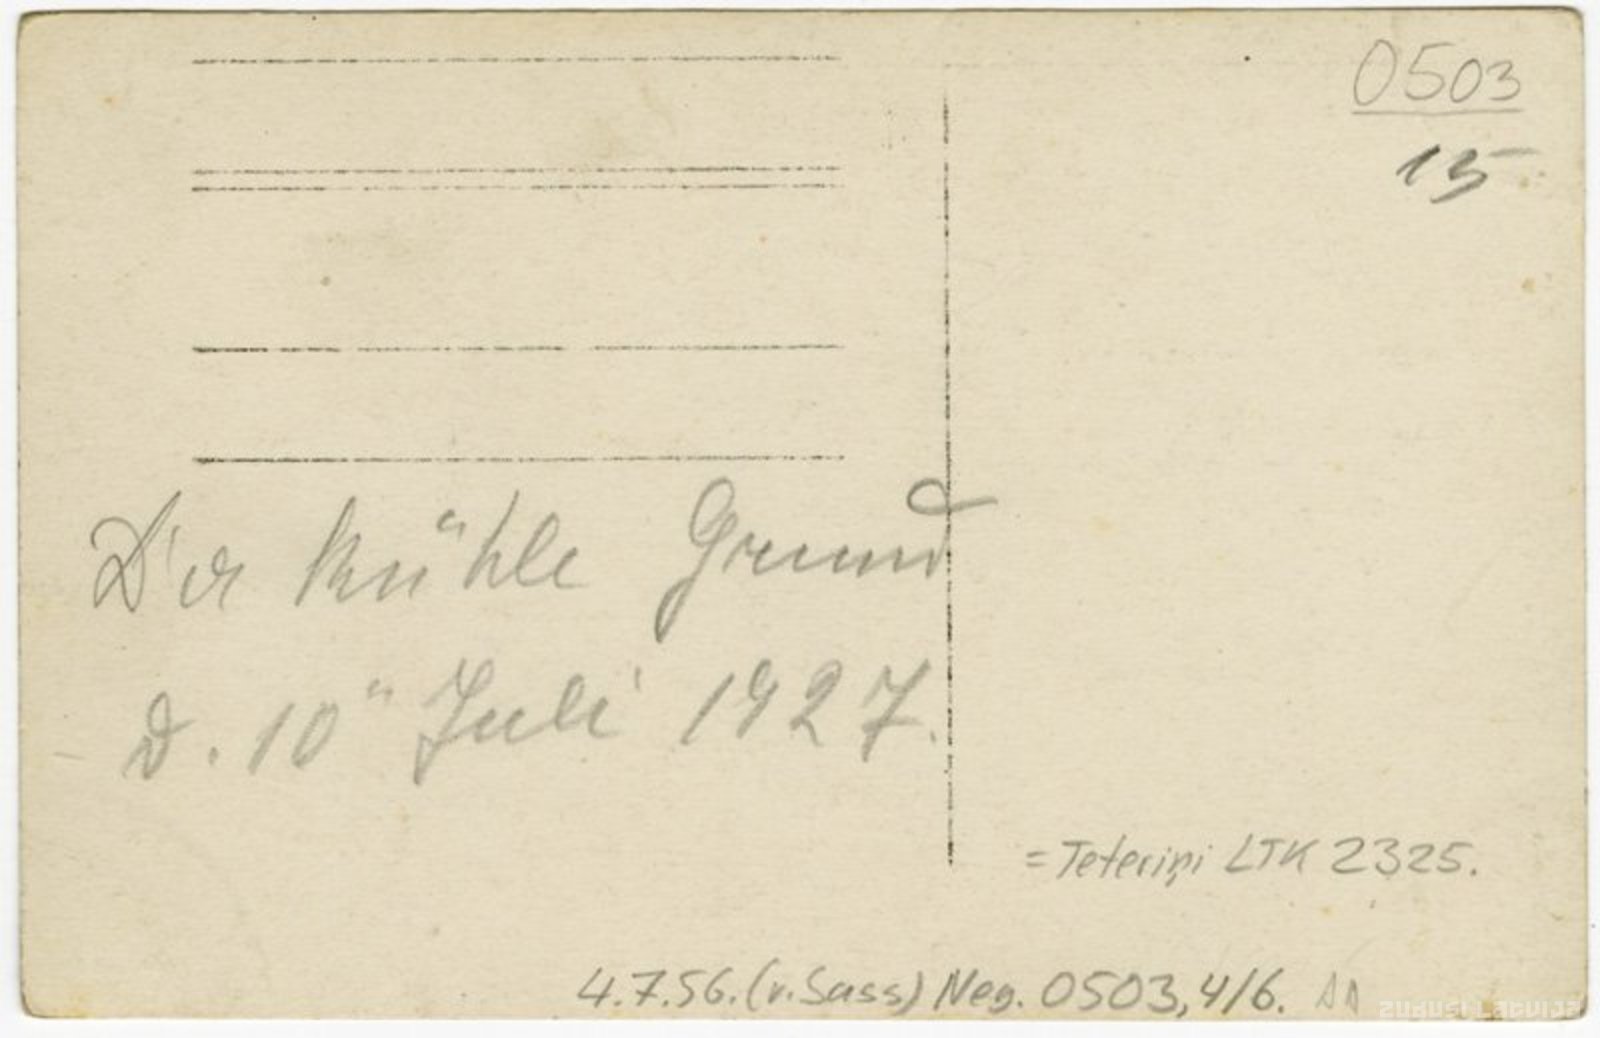 0503
15
Der kühle Grund
d. 10" Juli 1927.
= Teteriņi LTK 2325.
4.7.56. (v. Sass) Neg. 0503, 4/6.
zudusi Latvija